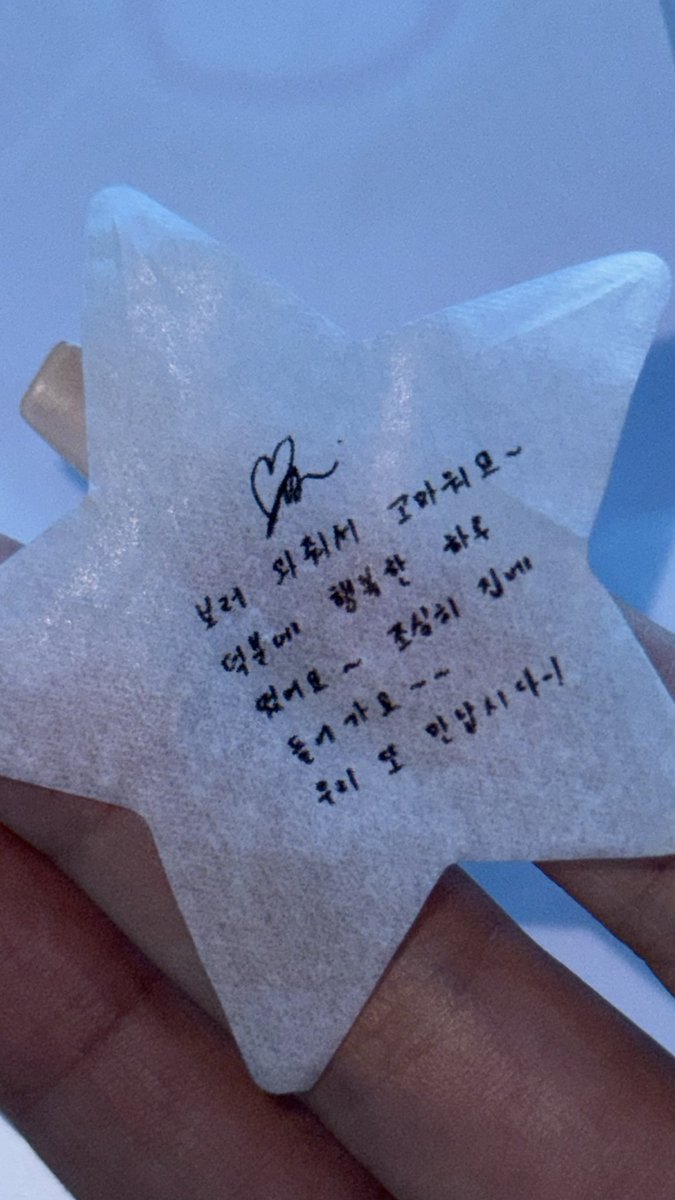 보러 와줘서 고마워요~
덕분에 행복한 하루
였어요~ 조심히 집에
들어가요~~
우리 또 만납시다-!